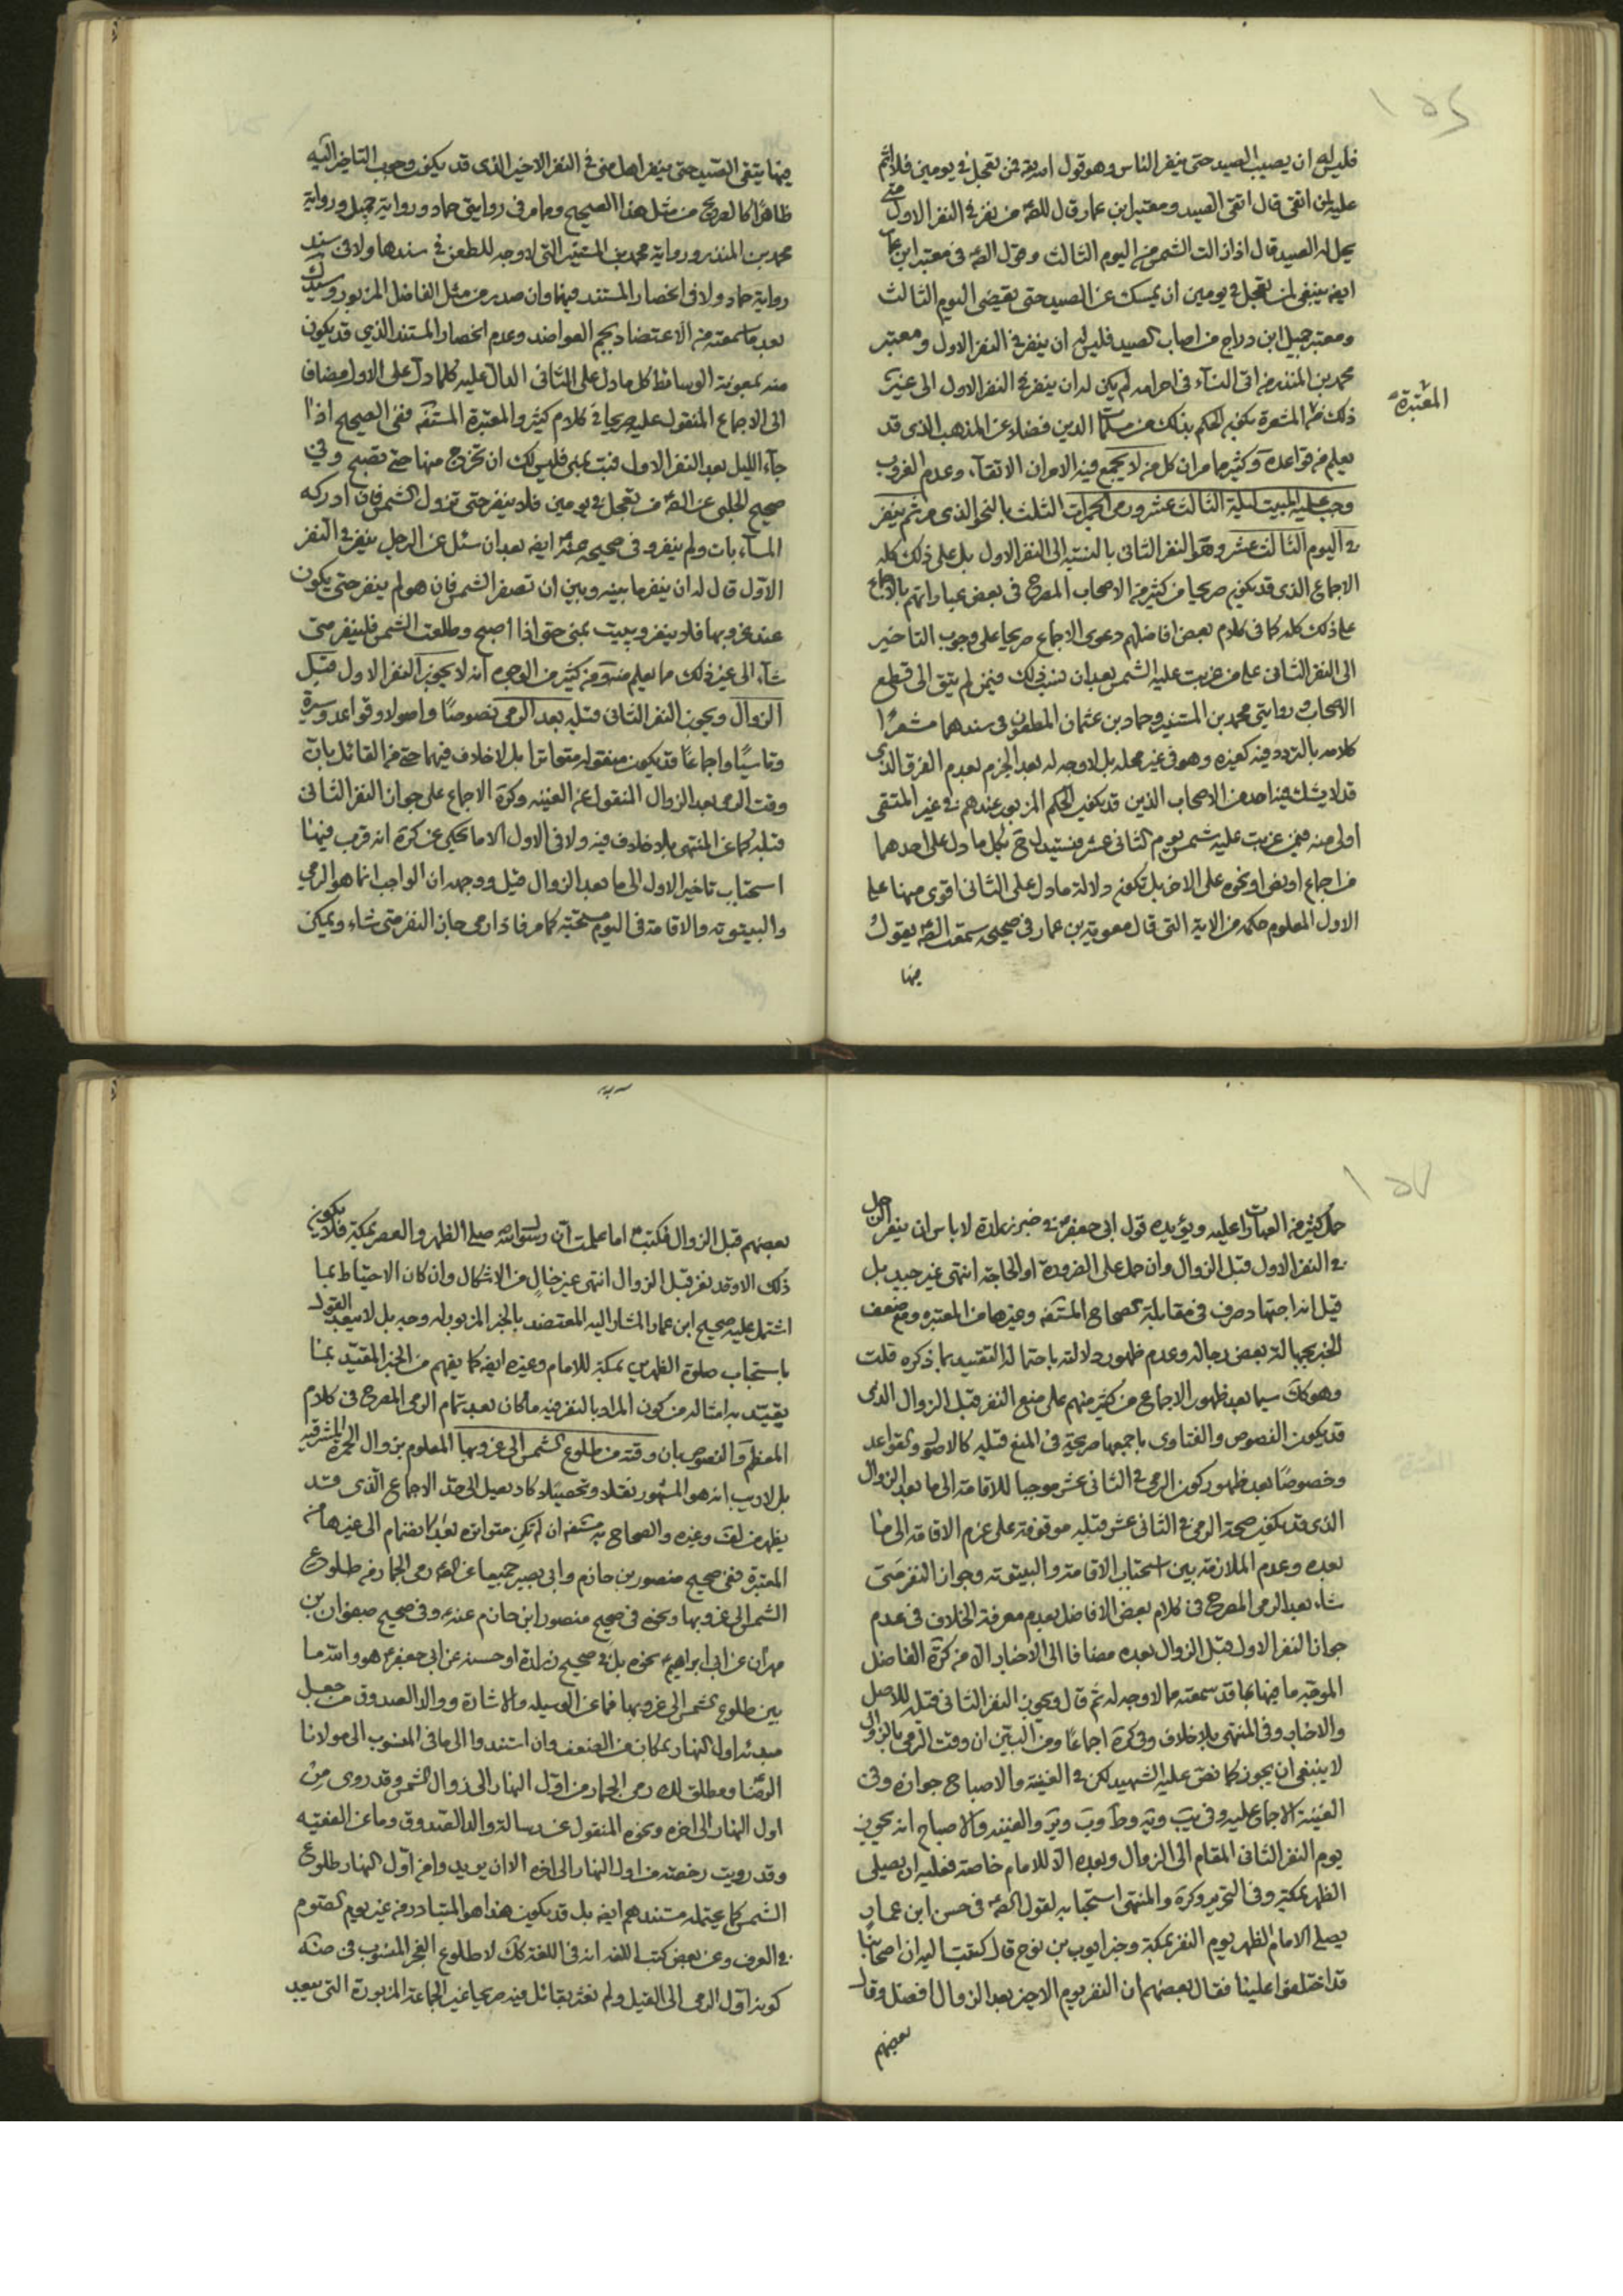 ١٥٦
فليس له ان يصيب الصيد حتى ينفر الناس وهو قول الله فمن تعجل في يومين فلا اثم
عليه لمن اتقى قال اتقى الصيد ومعتبر ابن عمار قال للصم من نفر في النفر الاول متى
يحل له الصيد قال اذا زالت الشمس من اليوم الثالث وقول الصم في معتبر ابن عمار
ايضه ينبغي لمن تعجل في يومين ان يمسك عن الصيد حتى يقضي اليوم الثالث
ومعتبر جميل ابن دراج من اصاب الصيد فليس له ان ينفر في النفر الاول ومعتبر
محمد بن المنذر من اتى النسآء في احرامه لم يكن له ان ينفر في النفر الاول الى غير
ذلك من المشعرة بكون الحكم بذلك من مسلمات الدين فضلا عن المذهب الذي قد
المعتبرة
يعلم من قواعده وكثير مما مر ان كل من لا يجمع فيه الامران الاتقآء وعدم الغروب
وجب عليه المبيت ليلة الثالث عشر ورمى الجمرات الثلث بالنحو الذي مر ثم ينفر
في اليوم الثالث عشر وهو النفر الثاني بالنسبة الى النفر الاول بل على ذلك كله
الاجماع الذي قد يكون صريحا من كثير من الاصحاب المصرح في بعض عباراتهم بالاجماع
على ذلك كله كما في كلام بعض افاضلهم دعوى الاجماع صريحا على وجوب التاخير
الى النفر الثاني على من غربت عليه الشمس بعد ان نسب ذلك فيمن لم يتق الى قطع
الاصحاب وروايتي محمد بن المستنير وحماد بن عثمان المطعون في سندهما مشعرا
كلامه بالتردد فيه كغيره وهو في غير محله بل لا وجه له بعد الجزم بعدم الفرق الذي
قد لا يشك فيه احد من الاصحاب الذين قد يكون الحكم المزبور عندهم في غير المتقى
اولى منه فيمن غربت عليه شمس يوم الثاني عشر فيستدل ح بكل ما دل على احدهما
من اجماع او نص او نحوه على الاخر بل تكون دلالة ما دل على الثاني اقوى منها على
الاول المعلوم حكمه من الاية التي قال معوية بن عمار في صحيحه سمعت الصم يقول
فيها
فيها يتقى الصيد حتى ينفر اهل منى في النفر الاخير الذي قد يكون وجوب التاخير اليه
ظاهرا كالصريح من مثل هذا الصحيح ومامر في روايتي حماد ورواية جميل ورواية
محمد بن المنذر ورواية محمد بن المستنير التي لا وجه للطعن في سندها ولا في سند
رواية حماد ولا في انحصار المستند فيهما وان صدر من مثل الفاضل المزبور
بعد ما سمعته من الاعتضاد بجم العواضد وعدم انحصار المستند الذي قد يكون
منه بمعونة الوسائط كل ما دل على الثاني الدال عليه كلما دل على الاول مضافا
الى الاجماع المنقول عليه صريحا في كلام كثير والمعتبرة المستفه ففي الصحيح اذا
جآء الليل بعد النفر الاول فبت بمنى فليس لك ان تخرج منها حتى تصبح وفي
صحيح الحلبي عن الصم من تعجل في يومين فلا ينفر حتى تزول الشمس فان ادركه
المسآء بات ولم ينفر وفي صحيحه عنه ايضه بعد ان سئل عن الرجل ينفر في النفر
الاول قال له ان ينفر ما بينه وبين ان تصفر الشمس فان هو لم ينفر حتى يكون
عند غروبها فلا ينفر ويبيت بمنى حتى اذا اصبح وطلعت الشمس فلينفر متى
شآء الى غير ذلك مما يعلم منه ومن كثير من الوجوه انه لا يجوز النفر الاول قبل
الزوال ويجوز النفر الثاني قبله بعد الرمي نصوصا واصولا وقواعد وسيرة
وتاسيا واجماعا قد يكون منقوله متواترا بل لا خلاف فيهما حتى من القائل بان
وقت الرمي بعد الزوال المنقول عن الغنيه وكره الاجماع على جواز النفر الثاني
قبله كما عن المنتهى بلا خلاف فيه ولا في الاول الا ما يحكى عن كره انه قرب فيها
استحباب تاخير الاول الى ما بعد الزوال قيل ووجهه ان الواجب انما هو الرمي
والبيتوته والاقامة في اليوم مستحبة كما مر فاذا رمى جاز النفر متى شاء ويمكن
١٥٧
حمل كثير من العبارات عليه ويؤيده قول ابي جعفر في خبر زرارة لا باس ان ينفر الرجل
في النفر الاول قبل الزوال وان حمل على الضرورة او الحاجة انتهى غير جيد بل
قيل انه اجتهاد صرف في مقابلة الصحاح المستفه وغيرها من المعتبره ومع ضعف
الخبر بجهالة بعض رجاله وعدم ظهور دلالته باحتماله التقييد بما ذكره قلت
وهو كك سيما بعد ظهور الاجماع من كثير منهم على منع النفر قبل الزوال الذي
قد يكون النصوص والفتاوى باجمعها صريحة في المنع قبله كالاصول والقواعد
وخصوصا بعد ظهور كون الرمي في الثاني عشر موجبا للاقامة الى ما بعد الزوال
الذي قد يكون صحة الرمي في الثاني عشر قبله موقوفة على عزم الاقامة الى ما
بعده وعدم الملازمة بين استحباب الاقامة والبيتوته وجواز النفر متى
شاء بعد الرمي المصرح في كلام بعض الافاضل بعدم معرفة الخلاف في عدم
جواز النفر الاول قبل الزوال بعده مضافا الى الاخبار الا من كره الفاضل
الموجه ما فيها بما قد سمعته مما لا وجه له ثم قال ويجوز النفر الثاني قبله للاصل
والاخبار وفي المنتهى بلا خلاف وفي كره اجماعا ومن البين ان وقت الرمي بالزوال
لا ينبغي ان يجوز كما نص عليه الشهيد لكن في الغنية والاصباح جوازه وفي
الغنية الاجماع عليه وفي يب ويه وط وب وير والغنيه والاصباح انه يجوز
يوم النفر الثاني المقام الى الزوال وبعده الا للامام خاصة فعليه ان يصلي
الظهر بمكة وفي التحرير وكره والمنتهى استحبابه لقول الصم في حسن ابن عمار
يصلي الامام الظهر يوم النفر بمكة وخبر ايوب بن نوح قال كتبت اليه ان اصحابنا
قد اختلفوا علينا فقال بعضهم ان النفر يوم الاخير بعد الزوال افضل وقال
بعضهم
بعضهم قبل الزوال فكتب اما علمت ان رسول الله صلى الظهر والعصر بمكة فلا يكون
ذلك الا وقد نفر قبل الزوال انتهى غير خال من الاشكال وان كان الاحتياط بما
اشتمل عليه صحيح ابن عمار المشار اليه المعتضد بالخبر المزبور له وجه بل لا يبعد القول
باستحباب صلوة الظهرين بمكة للامام وغيره ايضه كما يفهم من الخبر المقيد بما
يقيد به امثاله من كون المراد بالنفر فيه ما كان بعد تمام الرمي المصرح في كلام
المعظم والنصوص بان وقته من طلوع الشمس الى غروبها المعلوم بزوال الحمرة المشرقيه
بل لا ريب انه هو المشهور نقلا وتحصيلا كاد يصل الى حد الاجماع الذي قد
يظهر من لف وغيره والصحاح به مستفه ان لم تكن متواتره بعد انضمام الى غيرها من
المعتبرة ففي صحيح منصور بن حازم وابي بصير جميعا عن الصم رمي الجمار من طلوع
الشمس الى غروبها ونحوه في صحيح منصور ابن حازم عنه وفي صحيح صفوان بن
مهران عن ابي ابراهيم نحوه بل في صحيح زرارة او حسنه عن ابي جعفر هو والله ما
بين طلوع الشمس الى غروبها فما عن الوسيله والاشارة ووالد الصدوق من جعل
مبدئه اول النهار بمكان من الضعف وان استندوا الى ما في المنسوب الى مولانا
الرضا ومطلق لك رمي الجمار من اول النهار الى زوال الشمس وقد روى من
اول النهار الى اخره ونحوه المنقول عن رسالة والد الصدوق وما عن الفقيه
وقد رويت رخصته من اول النهار الى اخره الا ان يريدوا من اول النهار طلوع
الشمس كما يحتمله مستندهم ايضه بل قد يكون هذا هو المتبادر منه في غير يوم الصوم
في العرف وعن بعض كتب اللغه انه في اللغة كك لا طلوع الفجر المنسوب في
كونه اول الرمي الى القيل ولم نعثر بقائل فيه صريحا غير الجماعة المزبورة التي يبعد